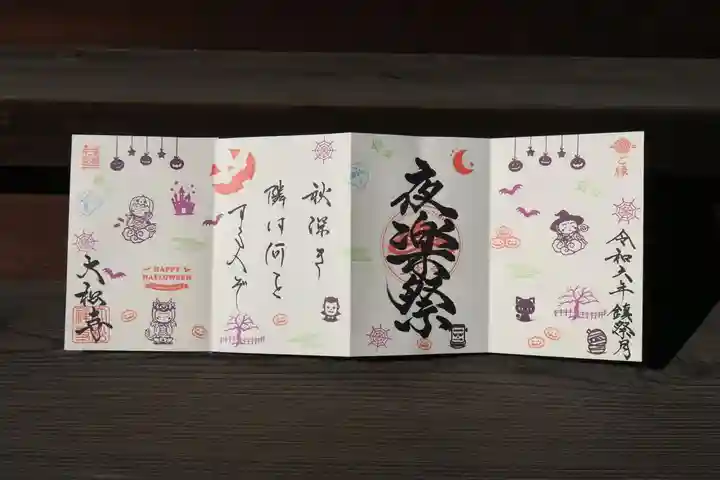 令和六年鎮祭月
夜楽祭
秋深き
隣は何を
する人ぞ
HAPPY
HALLOWEEN
大和寺